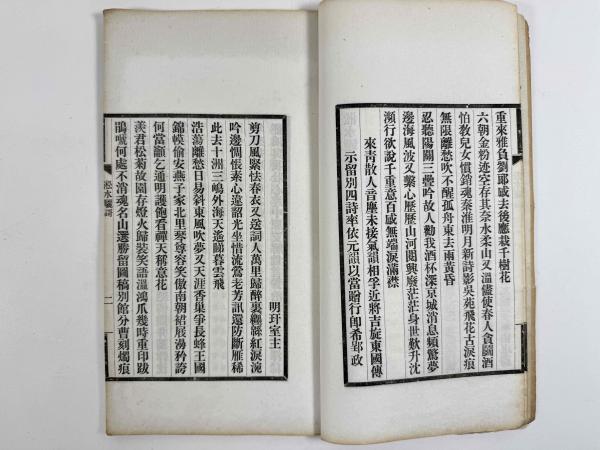 重來雅負劉郎感去後應栽千樹花
六朝金粉迹空存其奈水柔山又溫儘使春人貪鬬酒
怕教兒女慣銷魂秦淮明月新詩影吳苑飛花古淚痕
無限離愁吹不醒孤舟東去雨黃昏
忍聽陽關三疊吟故人勸我酒杯深京城消息頻驚夢
邊海風波又繫心歷歷山河閱興廢茫茫身世歎升沈
瀕行欲說千重意百感無端淚滿襟
來靑散人音塵未接氣韻相孚近將吉旋東國傳
示留別四詩率依元韻以當贈行卽希郢政
明玕室主
剪刀風緊怯春衣又送詞人萬里歸醉裏纒緜紅淚流
吟邊惆悵素心違韶光坐惜流鶯老芳訊還防斷雁稀
此去十洲三嶋外海天遙睇暮雲飛
浩蕩離愁日易斜東風吹夢又天涯香巢爭長蜂王國
錦幙偷安燕子家北里琴尊容笑傲南朝裙屐漫矜誇
何當籲乞通明護飽看禪天稱意花
羨君松菊故園存燈火歸裝笑語溫鴻爪幾時重印跋
鵑嘑何處不消魂名山選勝留圖稿別館分曹刻燭痕
淞水驪謌
二